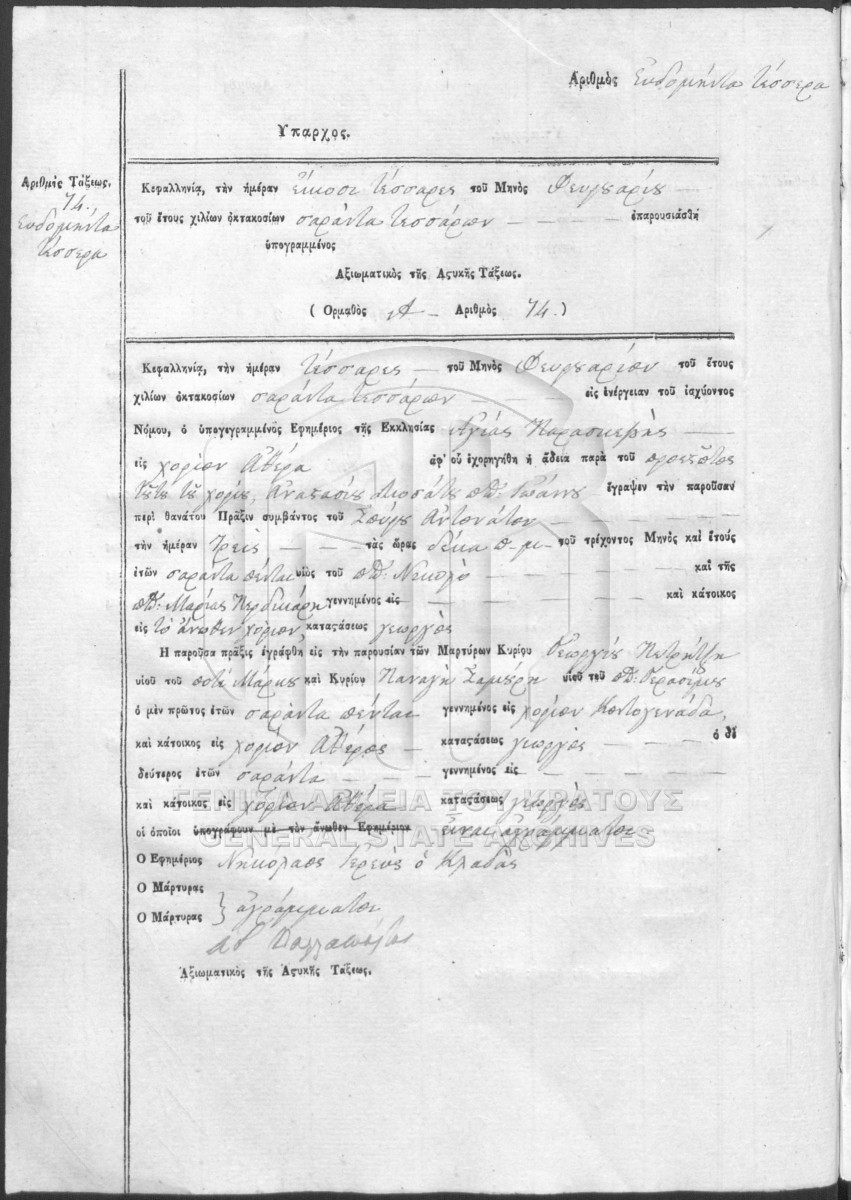 Αριθμὸς Ευδομήντα τέσσερα
Υπαρχος.
Αριθμὸς Τάξεως.
74.
Ευδομήντα
τέσσερα
Κεφαλληνίᾳ, τὴν ἡμέραν Εἴκοσι τέσσαρες τοῦ Μηνὸς Φευρουαρίου
τοῦ ἔτους χιλίων ὀκτακοσίων σαράντα τεσσάρων ἐπαρουσιάσθη
ὑπογραμμένος
Αξιωματικὸς τῆς Αςυκῆς Τάξεως.
( Ορμαθὸς Α Αριθμὸς 74. )
Κεφαλληνίᾳ, τὴν ἡμέραν τέσσαρες τοῦ Μηνὸς Φευρουαρίου τοῦ ἔτους
χιλίων ὀκτακοσίων σαράντα τεσσάρων εἰς ἐνέργειαν τοῦ ἰσχύοντος
Νόμου, ὁ ὑπογεγραμμένος Εφημέριος τῆς Εκκλησίας Αγίας Παρασκεβῆς
εἰς χορίον Αθέρα ἀφ' οὗ ἐχορηγήθη ἡ ἄδεια παρὰ τοῦ προεστότος
τȣ́τȣ τȣ͂ χορίȣ, Αναστασίȣ ποτ: Ἰωάννȣ ἔγραψεν τὴν παροῦσαν
περὶ θανάτου Πρᾶξιν συμβάντος τοῦ Σπύρȣ Αντονάτου
τὴν ἡμέραν τρεῖς τὰς ὥρας δέκα π. μ. τοῦ τρέχοντος Μηνὸς καὶ ἔτους
ἐτῶν σαράντα πέντε υἱὸς τοῦ ποτ: Νικολὸ καὶ τῆς
ποτ: Μαρίας γεννημένος εἰς καὶ κάτοικος
εἰς τὸ ἄνωθεν χορίον, καταςάσεως γεωργὸς
Η παροῦσα πρᾶξις ἐγράφθη εἰς τὴν παρουσίαν τῶν Μαρτύρων Κυρίου Γεωργίȣ Πετρήτζη
υἱοῦ τοῦ ποτὲ Μάρκȣ καὶ Κυρίου Παναγῆ υἱοῦ τοῦ ποτ: Γερασίμȣ
ὁ μὲν πρῶτος ἐτῶν σαράντα πέντε γεννημένος εἰς χορίον Κοντογενάδα,
καὶ κάτοικος εἰς χορίον Αθέρος καταςάσεως γεωργὸς ὁ δὲ
δεύτερος ἐτῶν σαράντα γεννημένος εἰς
καὶ κάτοικος εἰς χορίον Αθέρα καταςάσεως γεωργὸς
οἱ ὁποῖοι ὑπογράφουν μὲ τὸν ἄνωθεν Εφημέριον εἶναι ἀγράμματοι
Ο Εφημέριος Νηκόλαος Ἱερεὺς ὁ Κλαδᾶς
Ο Μάρτυρας
Ο Μάρτυρας } ἀγράμματοι
Αξιωματικὸς τῆς Αςυκῆς Τάξεως.
ΓΕΝΙΚΑ ΑΡΧΕΙΑ ΤΟΥ ΚΡΑΤΟΥΣ
GENERAL STATE ARCHIVES